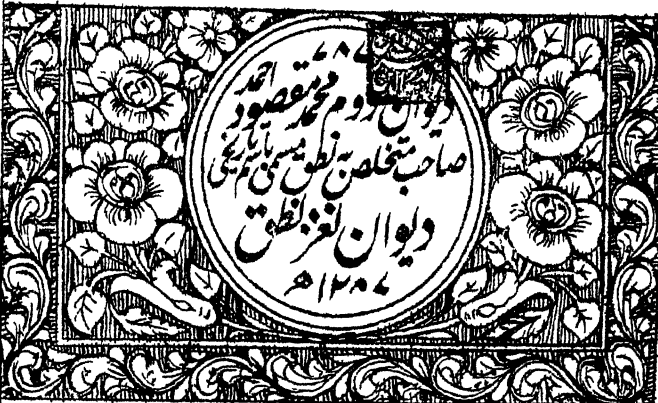 ۷۸۶
دیوان دوم محمد مقصود احمد
صاحب متخلص بہ نطق مسمی باسم تاریخی
دیوان نغز نطق
۱۲۸۷ھ